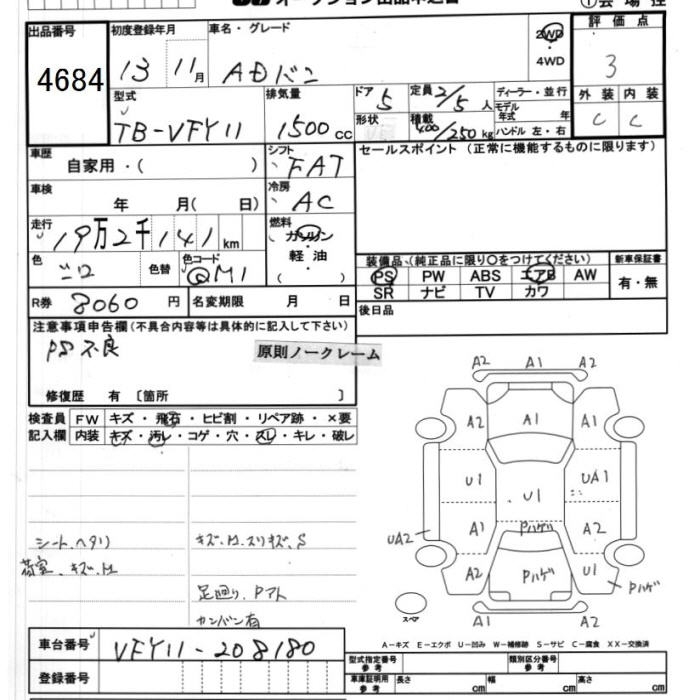 出品番号 初度登録年月 車名・グレード 2WD 評価点
4684 13 11月 ADバン 4WD 3
型式 排気量 ドア 定員 ディーラー・並行 外装 内装
TB-VFY11 1500cc 5 2/5人 モデル年式 年 C C
形状 積載 400/250kg ハンドル 左・右
車歴 シフト セールスポイント(正常に機能するものに限ります)
自家用・( ) FAT
車検 冷房
年 月( 日) AC
走行 燃料
19万2千141km ガソリン
色 色替 色コード 軽油
シロ @M1 ( )
装備品(純正品に限り○をつけてください) 新車保証書
PS PW ABS エアB AW 有・無
SR ナビ TV カワ
R券 8060円 名変期限 月 日 後日品
注意事項申告欄(不具合内容等は具体的に記入して下さい)
PS不良
原則ノークレーム
修復歴 有 〔箇所 〕
検査員 FW キズ・飛石・ヒビ割・リペア跡・×要
記入欄 内装 キズ・汚レ・コゲ・穴・スレ・キレ・破レ
A2 A1 A2
A2 A1 A1
U1 U1 UA1
UA2 A1 Pハゲ A2
A2 Pハゲ U1 Pハゲ
シート、ヘタリ キズ、凹、スリキズ、S
荷室、キズ、凹
足廻り、Pアト
カンバン有
スペア
A-キズ E-エクボ U-凹み W-補修跡 S-サビ C-腐食 XX-交換済
車台番号 VFY11-208180
型式指定番号 参考 類別区分番号 参考
登録番号
車庫証明用 参考 長さ cm 幅 cm 高さ cm